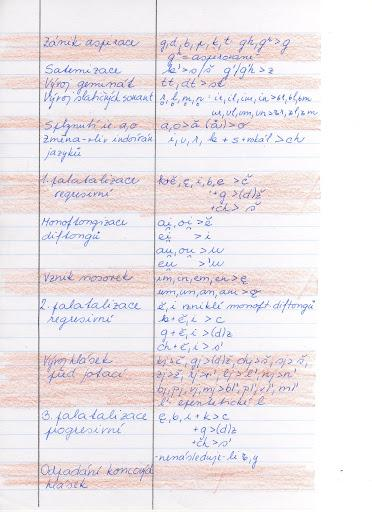 Zánik aspirace g, d, b, p, k, t gh, gʰ > g
gʰ = aspirované
Satemizace k' > s/š g'/g'h > z
Vývoj geminát tt, dt > st
Vývoj slabičných sonant
Splynutí ie. a, o a, o > ā (å) > o
Změna - vliv indoirán. jazyků i, u, r, k + s + vokál > ch
1. palatalizace regresivní k+ě, ę, i, ь, e > č
+g > (d)ž
+ch > š
Monoftongizace diftongů ai, oi > ě
ei > i
au, ou > u
eu > 'u
Vznik nosovek im, in, em, en > ę
um, un, an, am > ǫ
2. palatalizace regresivní ě, i vzniklé monoft. diftongů
k+ě, i > c
g+ě, i > (d)z
ch+ě, i > s'
Vývoj hlásek před jotací kj > č, gj > (d)ž, chj > š, sj > š,
zj > ž, rj > r', lj > l', nj > n'
bj, pj, vj, mj > bl', pl', vl', ml'
l' epentetické l
3. palatalizace progresivní ę, ь, i + k > c
+g > (d)z
+ch > s'
- nenásleduje-li ъ, y
Odpadání koncových hlásek